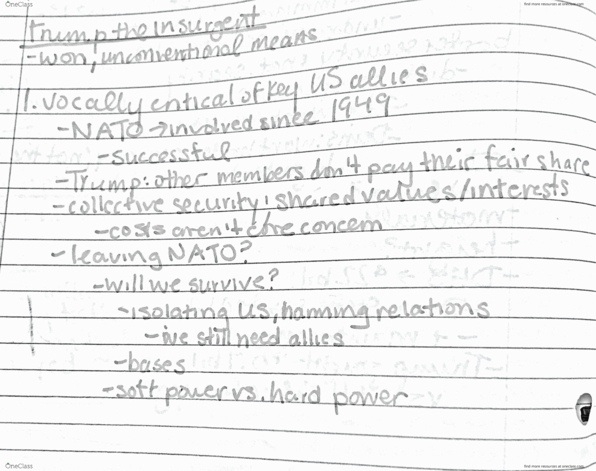 OneClass
find more resources at oneclass.com
Trump the Insurgent
-won, unconventional means
1. vocally critical of key US allies
-NATO → involved since 1949
-successful
-Trump: other members don't pay their fair share
-collective security: shared values/interests
-costs aren't core concern
-leaving NATO?
-will we survive?
-isolating US, harming relations
-we still need allies
-bases
-soft power vs. hard power
OneClass
find more resources at oneclass.com